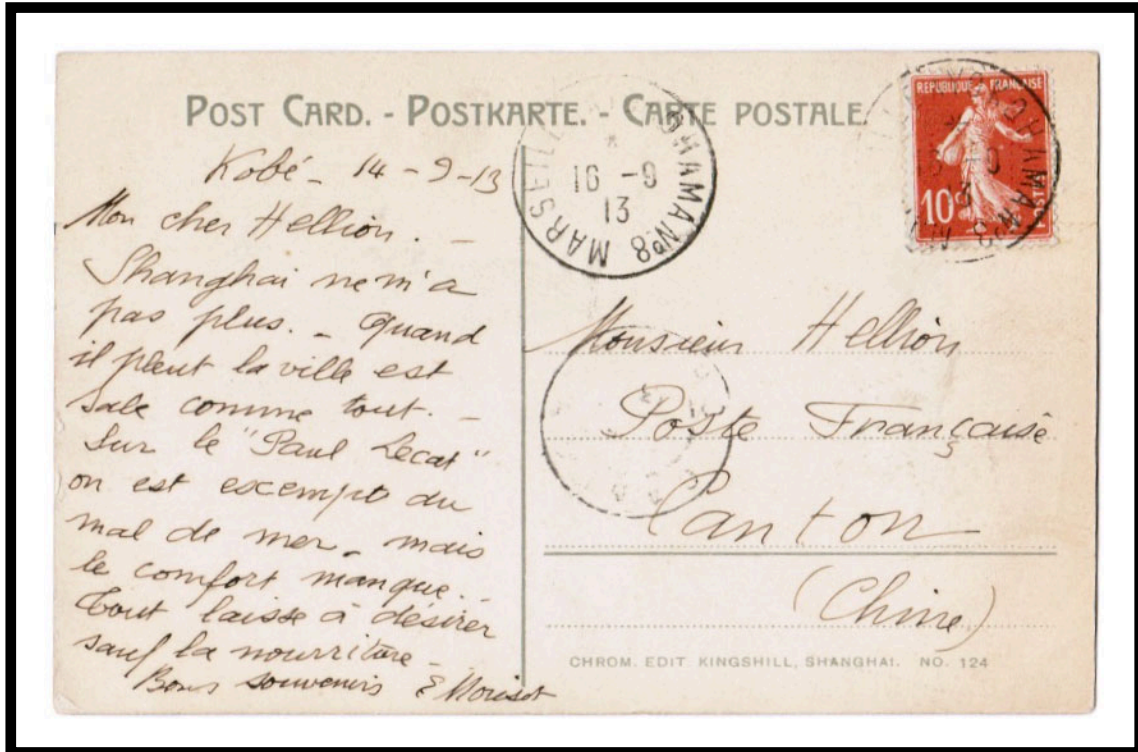 POST CARD. - POSTKARTE. - CARTE POSTALE.
Kobé - 14 - 9 - 13
Mon cher Hellion. -
Shanghai ne m'a
pas plus. - Quand
il pleut la ville est
sale comme tout. -
Sur le "Paul Lecat"
on est escempto du
mal de mer - mais
le comfort manque. -
Tout laisse à désirer
sauf la nourriture -
Bons souvenirs E Morisot
REPUBLIQUE FRANÇAISE
10c
POSTES
OHAMA Nº8 MARSEILL
16 - 9
13
Monsieur Hellion
Poste Française
Canton
(Chine)
CHROM. EDIT KINGSHILL, SHANGHAI. NO. 124